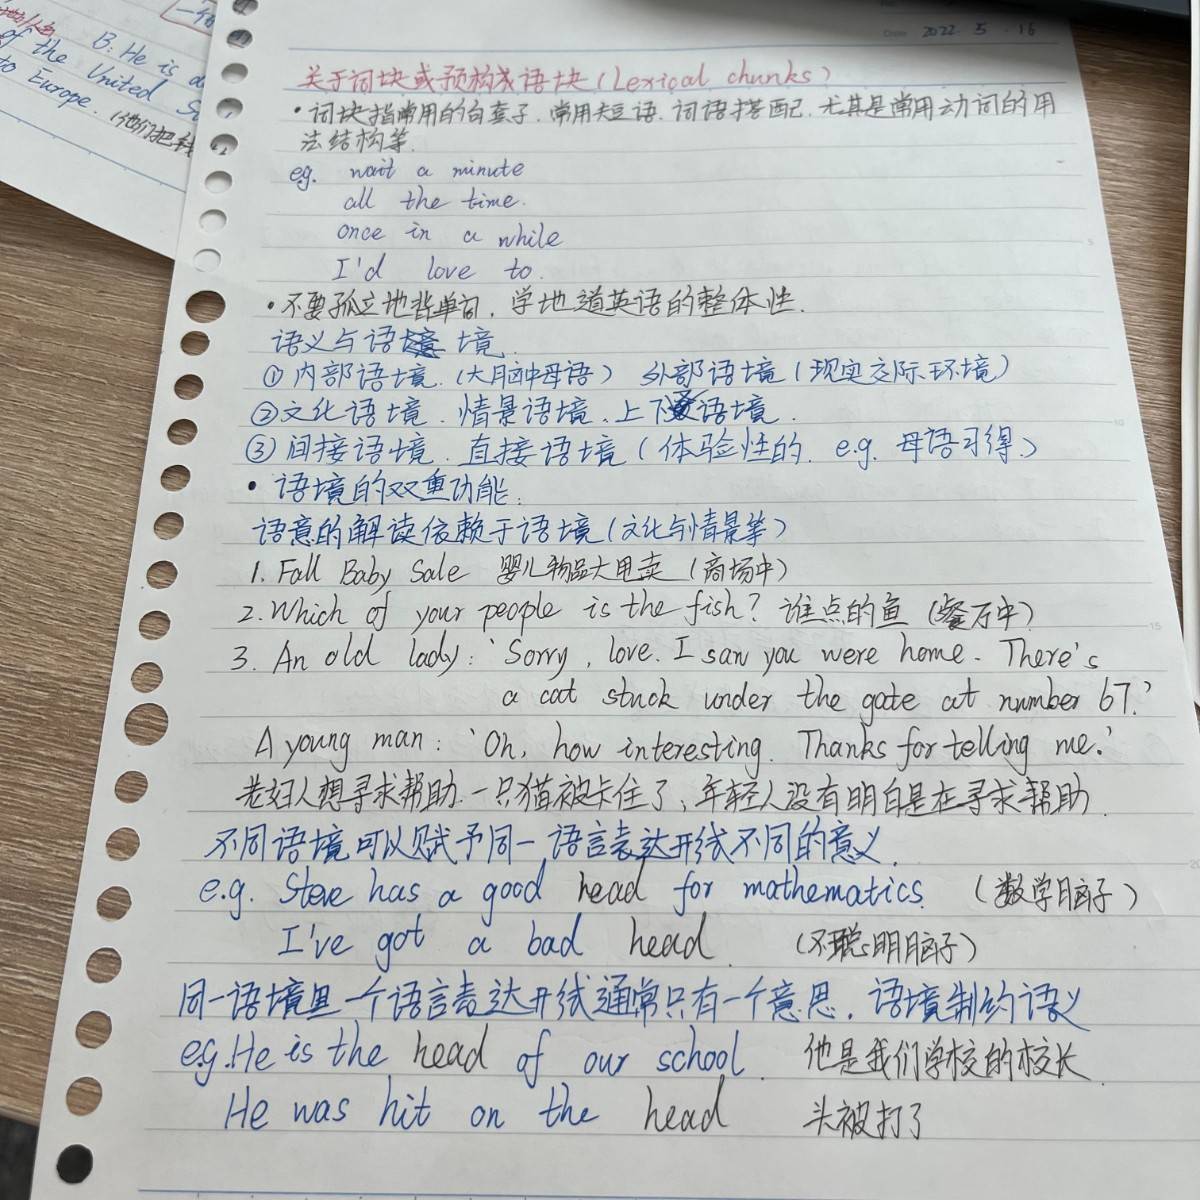 Date 2022. 5. 16
关于词块或预构成语块(Lexical chunks)
·词块指常用的句套子.常用短语.词语搭配.尤其是常用动词的用
法结构等.
eg. wait a minute
all the time.
once in a while
I'd love to.
·不要孤立地背单词,学地道英语的整体性.
语义与语境
①内部语境.(大脑中母语) 外部语境(现实交际环境)
②文化语境.情景语境、上下语境.
③间接语境.直接语境(体验性的. e.g. 母语习得.)
·语境的双重功能:
语意的解读依赖于语境(文化与情景等)
1. Fall Baby Sale 婴儿物品大甩卖(商场中)
2. Which of your people is the fish? 谁点的鱼(餐厅中)
3. An old lady: 'Sorry, love. I saw you were home. There's
a cat stuck under the gate at number 67.'
A young man: 'Oh, how interesting. Thanks for telling me.'
老妇人想寻求帮助.一只猫被卡住了、年轻人没有明白是在寻求帮助.
不同语境可以赋予同一语言表达形式不同的意义.
e.g. Steve has a good head for mathematics. (数学脑子)
I've got a bad head. (不聪明脑子)
同一语境里一个语言表达形式通常只有一个意思.语境制约语义
e.g. He is the head of our school. 他是我们学校的校长.
He was hit on the head 头被打了
B: He is
of the United S
to Europe. (他们把